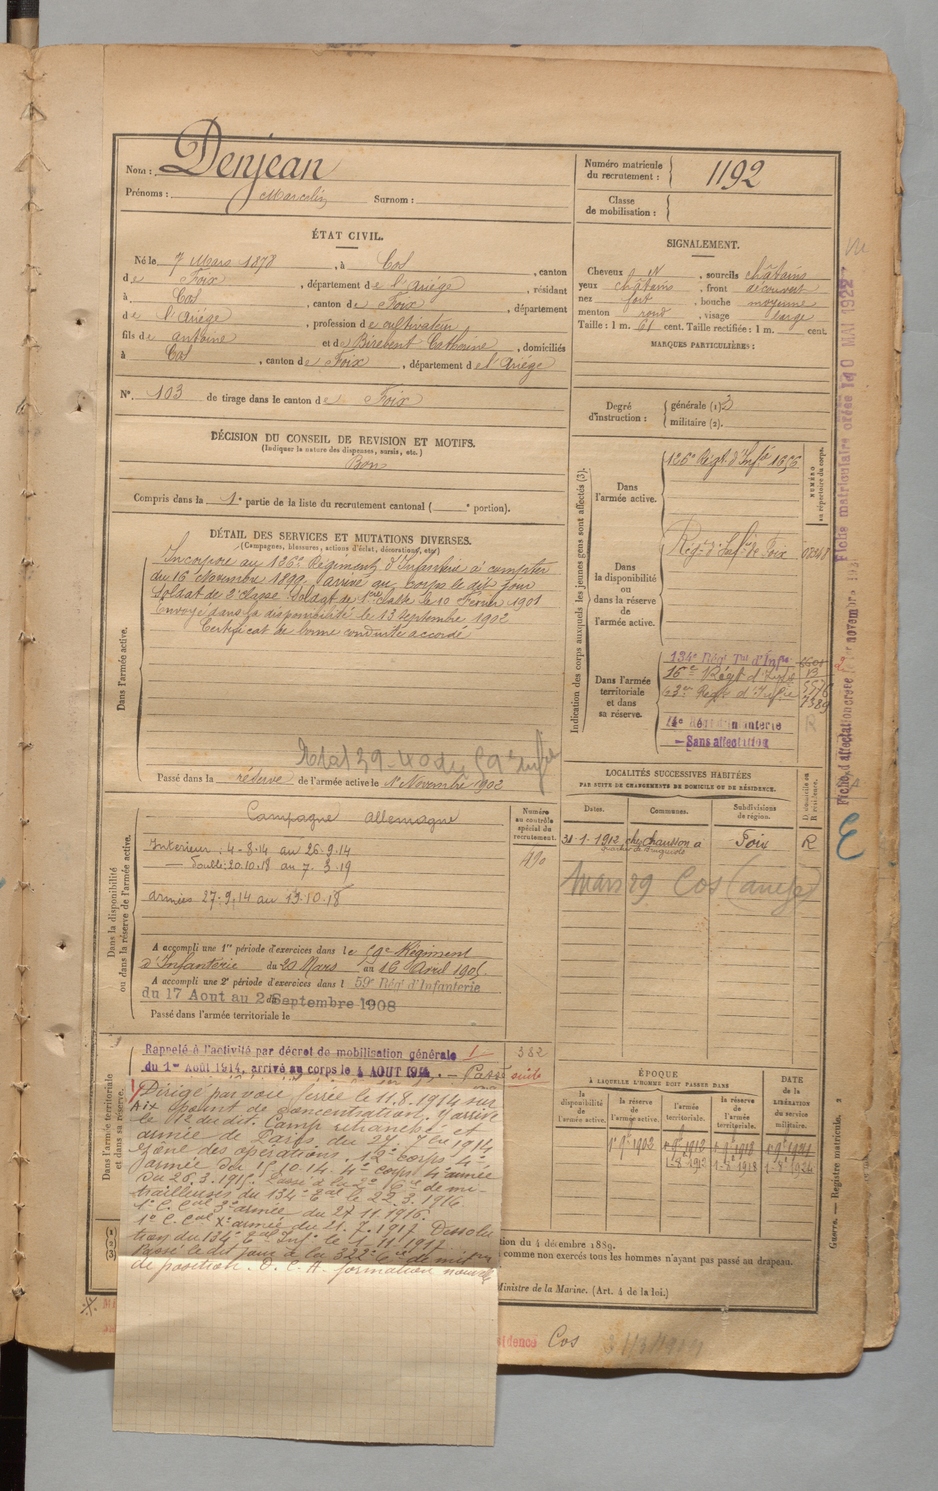 Nom : Denjean
Prénoms : Marcelin Surnom :
Numéro matricule du recrutement : 1192
Classe de mobilisation :
ÉTAT CIVIL.
Né le 7 Mars 1878, à Cos, canton
de Foix, département de l'Ariége, résidant
à Cos, canton de Foix, département
de l'Ariége, profession de cultivateur
fils de antoine et de Birebent Catherine, domiciliés
à Cos, canton de Foix, département de l'Ariége
N° 103 de tirage dans le canton de Foix
SIGNALEMENT.
Cheveux, sourcils châtains
yeux châtains, front découvert
nez fort, bouche moyenne
menton rond, visage large
Taille : 1 m. 61 cent. Taille rectifiée : 1 m. cent.
MARQUES PARTICULIÈRES :
Degré d'instruction : générale (1) 3
militaire (2).
DÉCISION DU CONSEIL DE REVISION ET MOTIFS.
(Indiquer la nature des dispenses, sursis, etc.)
Bon
Compris dans la 1e partie de la liste du recrutement cantonal ( e portion).
DÉTAIL DES SERVICES ET MUTATIONS DIVERSES.
(Campagnes, blessures, actions d'éclat, décorations, etc.)
Dans l'armée active.
Incorporé au 126e Régiment d'Infanterie à compter
du 16 Novembre 1899, arrivé au corps le dit jour
Soldat de 2e classe. Soldat de 1ère classe le 10 Février 1901
Envoyé dans la disponibilité le 13 Septembre 1902
Certificat de bonne conduite accordé
Passé dans la réserve de l'armée active le 1er Novembre 1902
Indication des corps auxquels les jeunes gens sont affectés (3).
Dans l'armée active.
126e Régt d'Infie
NUMÉRO au répertoire du corps.
Dans la disponibilité ou dans la réserve de l'armée active.
Régt d'Infie de Foix
Dans l'armée territoriale et dans sa réserve.
134e Régt Tal d'Infie
Sans affectation
LOCALITÉS SUCCESSIVES HABITÉES
PAR SUITE DE CHANGEMENTS DE DOMICILE OU DE RÉSIDENCE.
Dates. Communes. Subdivisions de région.
31-1-1912 chez Chausson à Foix R
Mars 29 Cos
Dans la disponibilité ou dans la réserve de l'armée active.
Numéro au contrôle spécial du recrutement.
Campagne allemagne
Intérieur : 4-8-14 au 26.9.14
20.10.18 au 7.3.19
armées 27.9.14 au 19.10.18
A accompli une 1re période d'exercices dans le 59e Régiment
d'Infanterie du 20 Mars au 16 Avril 1905
A accompli une 2e période d'exercices dans l 59e Rég' d'Infanterie
du 17 Aout au 2 Septembre 1908
Passé dans l'armée territoriale le
Dans l'armée territoriale et dans sa réserve.
Rappelé à l'activité par décret de mobilisation générale
du 1er Août 1914, arrivé au corps le 4 AOUT 1914. Passé
332
Dirigé par voie ferrée le 11.8.1914 sur
Aix point de concentration. Y arrivé
le 12 du dit. Camp retranché et
armée de Paris du 27. 7bre 1914
Zône des opérations. 12e corps 4e
armée du 15.10.14. 4e corps 4e armée
du 26.3.1915. Passé à la 2e Cie de mi-
trailleuses du 134e Eal le 22.3.1916.
1e C. Cal 3e armée du 27.11.1916.
1e C. Cal Xe armée du 21.7.1917. Dissolu
tion du 134e Eal Inf. le 1.11.1917.
Passé le dit jour à la 322e Cie de mitrses
de position. D.C.A. formation nouvelle
ÉPOQUE
À LAQUELLE L'HOMME DOIT PASSER DANS
la disponibilité de l'armée active.
la réserve de l'armée active.
l'armée territoriale.
la réserve de l'armée territoriale.
DATE de la LIBÉRATION du service militaire.
tion du 4 décembre 1889.
comme non exercés tous les hommes n'ayant pas passé au drapeau.
Ministre de la Marine. (Art. 4 de la loi.)
Guerre. — Registre matricule.
Cos